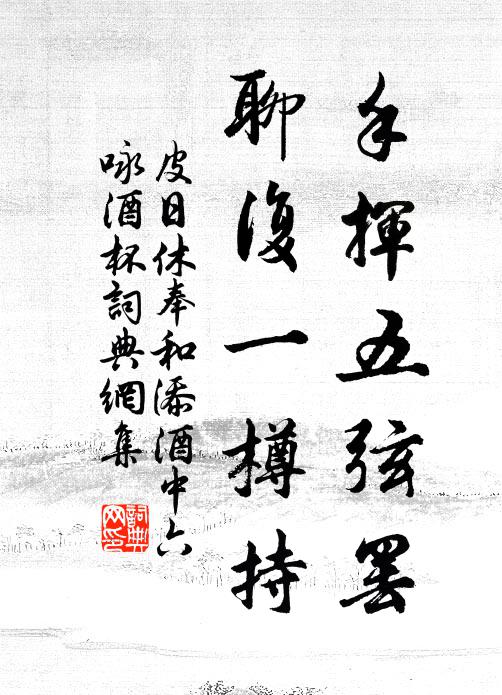 手揮五弦罷
聊復一樽持
皮日休奉和添酒中六
咏酒杯詞典網集
詞典网印